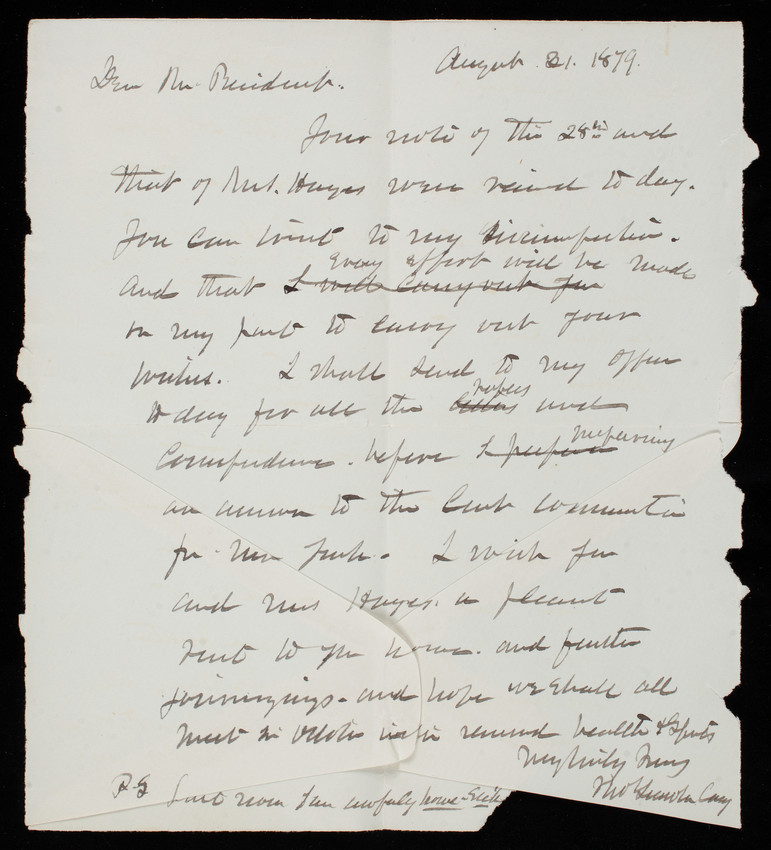 August 31. 1879.
Dear Mr. President.
Your note of the 28th and
that of Mrs. Hayes were received to day.
You can trust to my discretion.
and that I will carry out your every effort will be made
on my part to carry out your
wishes. I shall send to my office
to day for all the letters papers and
correspondence. before I prepare preparing
an answer to the last communication
from New York. I wish you
and Mrs Hayes. a pleasant
visit to your home. and further
journeyings. and hope we shall all
meet in October with renewed health & spirits
Very truly Yours
Tho Lincoln Casey
P.S. I am awfully home-sick